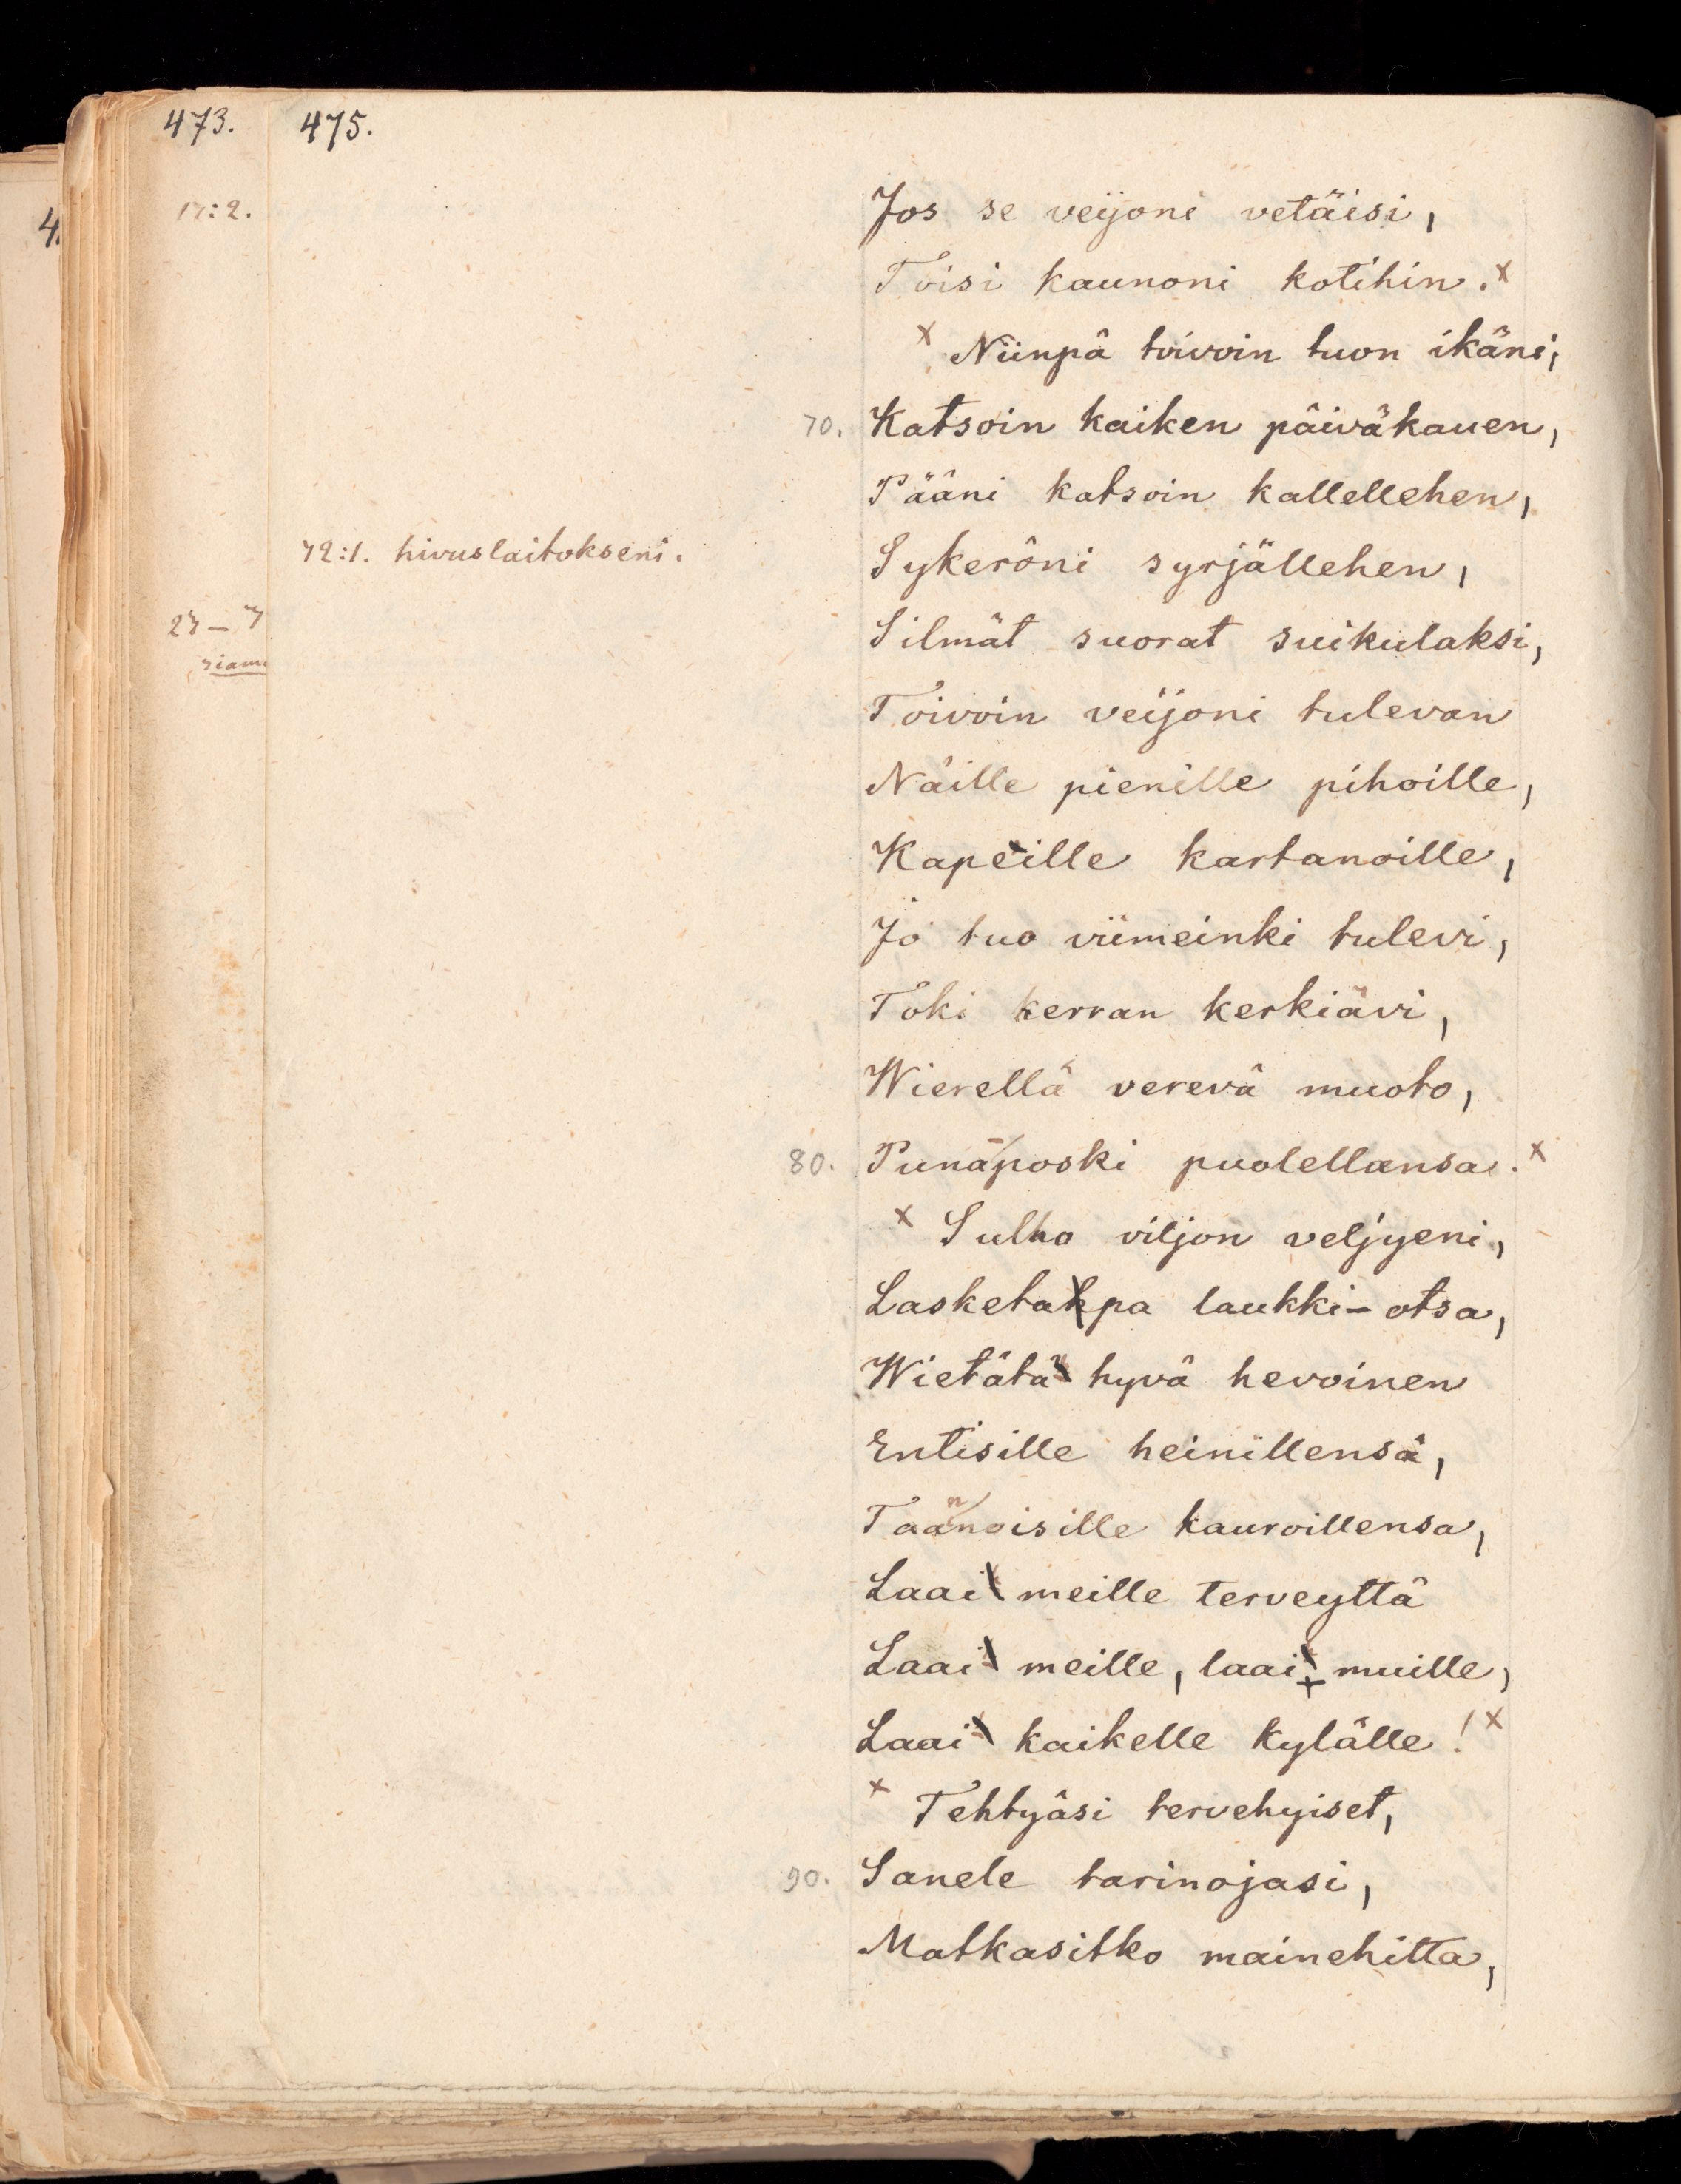 473. 475.
17:2.
Jos se veijoni vetäisi,
Toisi kaunoni kotihin. x
x Niinpä toivoin tuon ikäni,
70. Katsoin kaiken päiväkauen,
Pääni katsoin kallellehen,
72:1. hivuslaitokseni.
Sykeröni syrjällehen,
27–7
Silmät suorat suikulaksi,
Toivoin veijoni tulevan
Näille pienille pihoille,
Kapeille kartanoille,
Jo tuo viimeinki tulevi,
Toki kerran kerkiävi,
Wierellä verevä muoto,
80. Punaposki puolellansa. x
x Sulho viljon veljyeni,
Lasketakpa laukki-otsa,
Wietätä hyvä hevoinen
Entisille heinillensä,
Taannoisille kauroillensa,
Laai meille terveyttä
Laai meille, laai muille,
Laai kaikelle kylälle! x
x Tehtyäsi tervehyiset,
90. Sanele tarinojasi,
Matkasitko mainehitta,